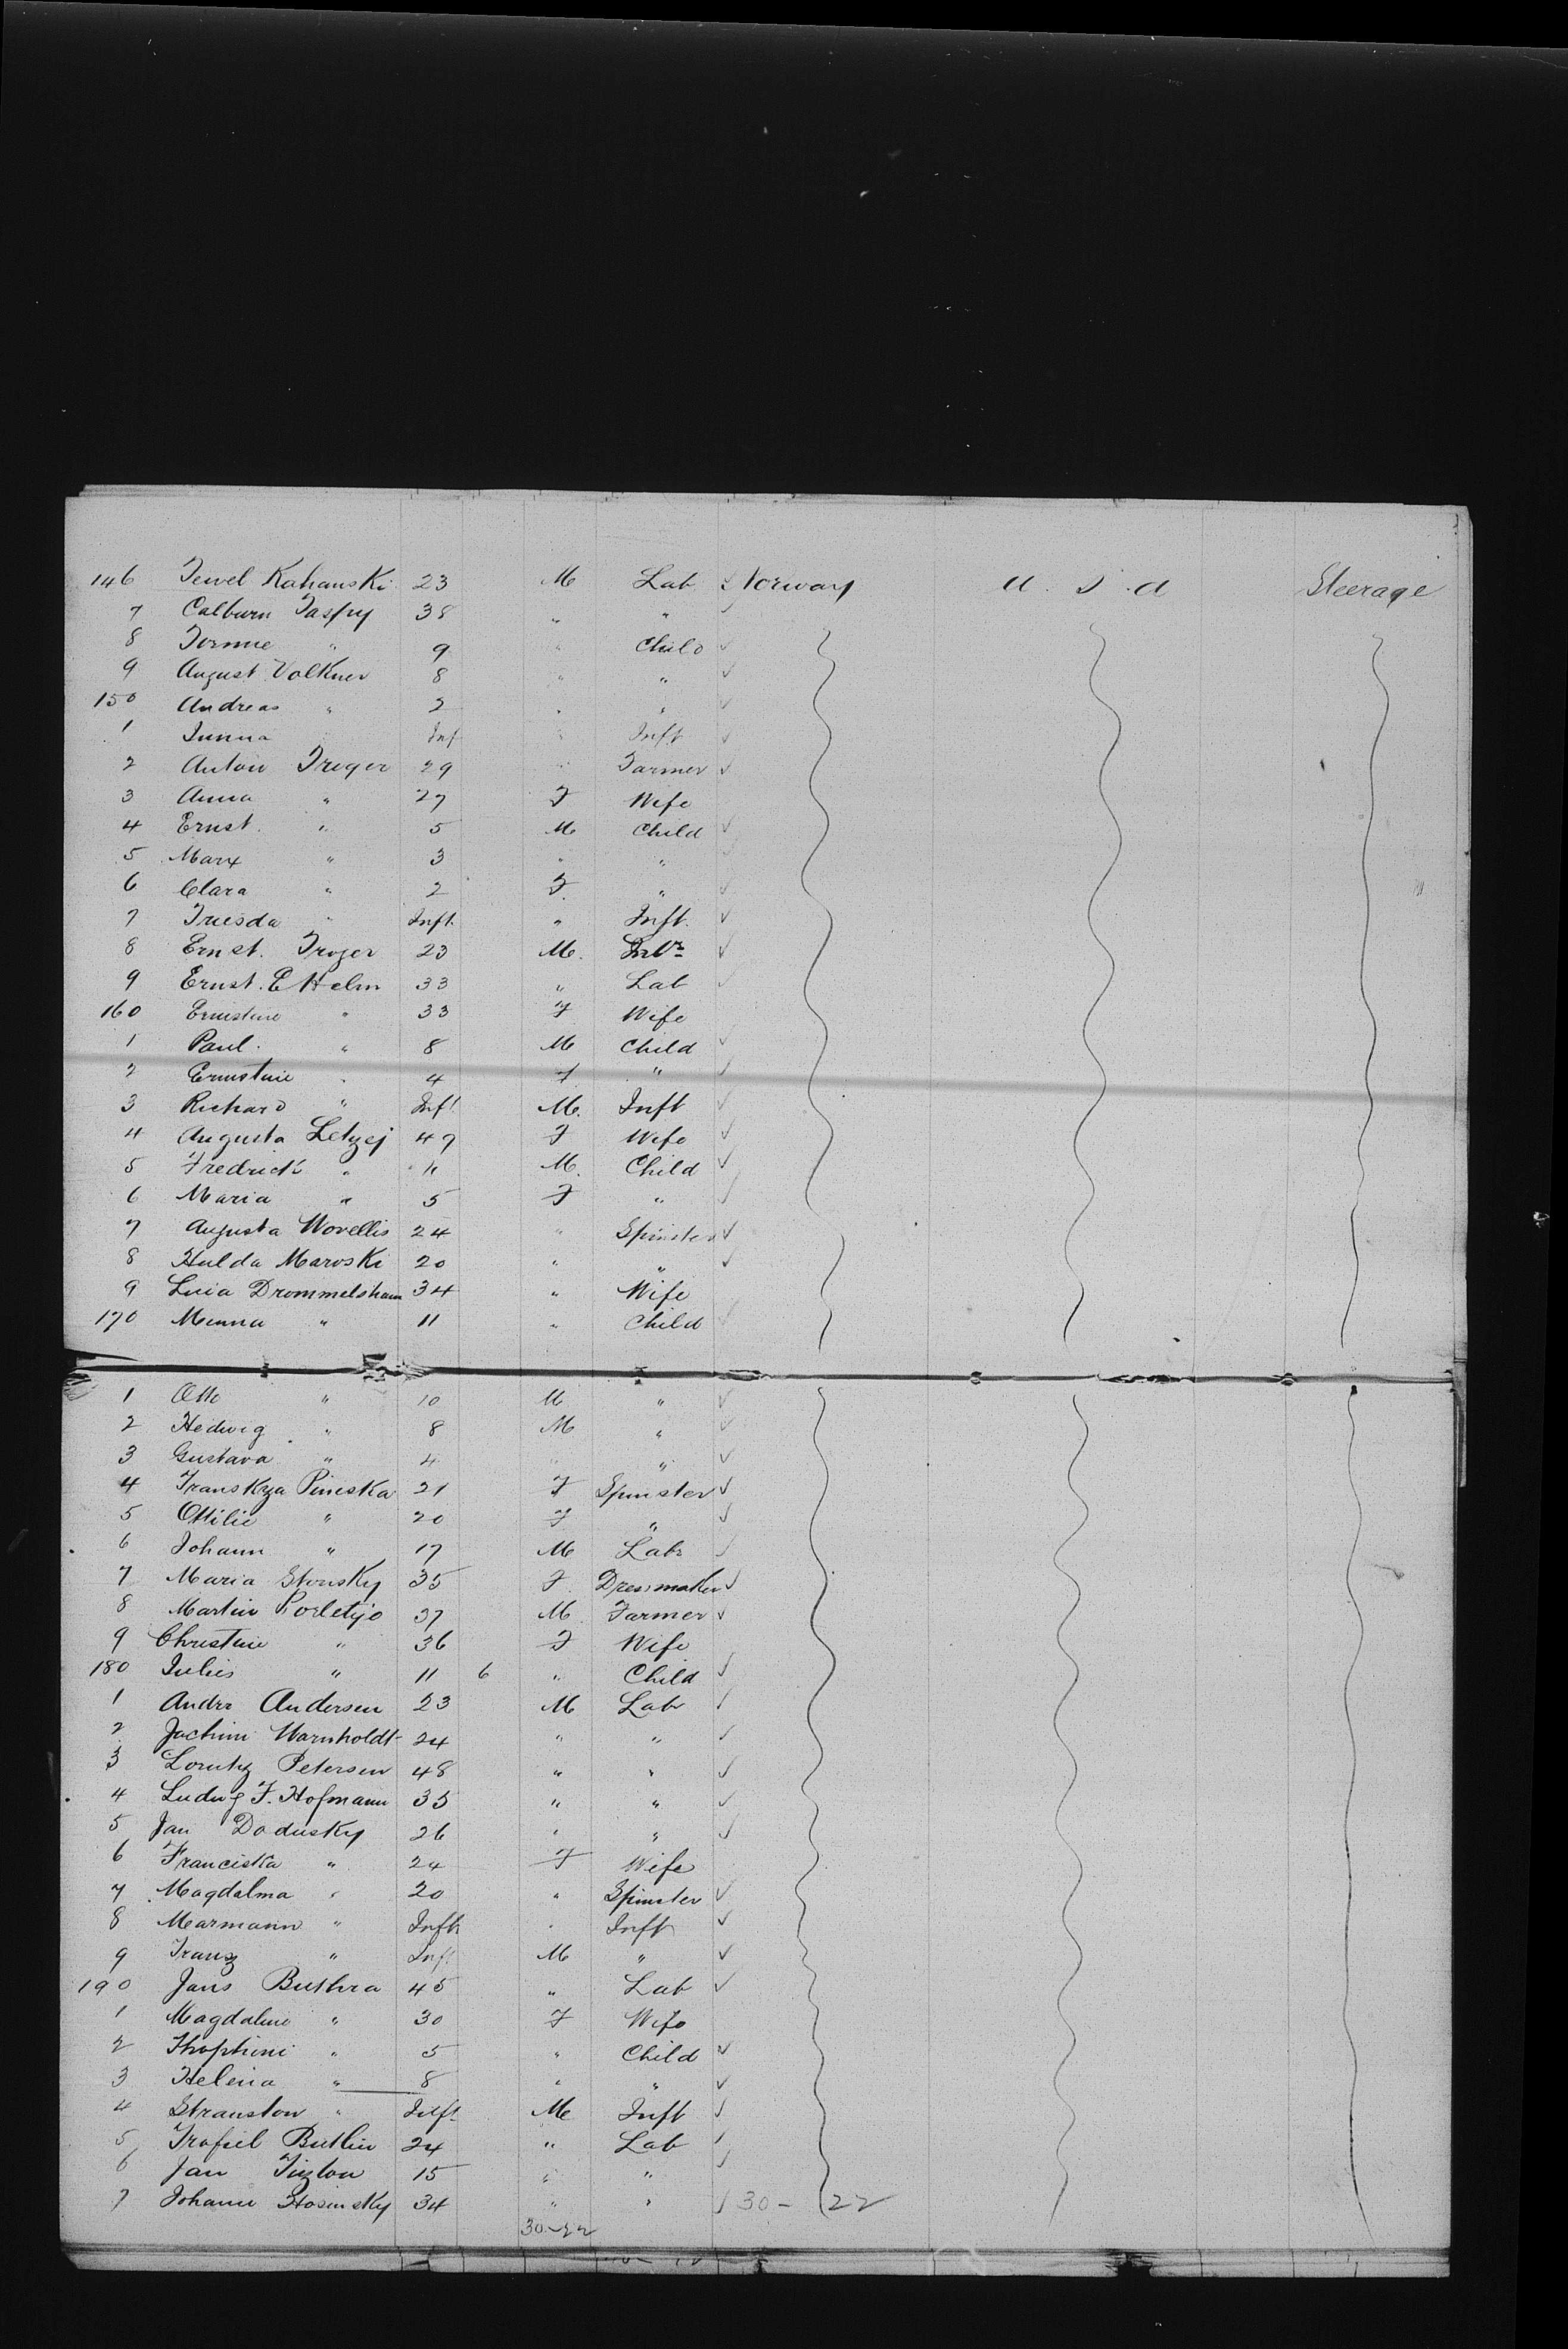 146 Tewel Kahanski 23 M Lab ✓ Norway U.S.A Steerage
7 Calburn Jaspry 38 " " ✓
8 " 9 " Child ✓
9 August Volkner 8 " " ✓
150 Andreas " 2 " " ✓
1 Inf " Inft ✓
2 Anton Treger 29 " Farmer ✓
3 Anna " 27 F Wife
4 Ernst " 5 M Child ✓
5 Marx " 3 " " ✓
6 Clara " 2 F " ✓
7 " Inft. " Inft. ✓
8 Ernst. Troger 23 M. ✓
9 Ernst. E Helm 33 " Lab ✓
160 Ernstine " 33 F Wife
1 Paul. " 8 M Child ✓
2 Ernstine " 4 F " ✓
3 Richard " Inft M. Inft ✓
4 Augusta Letzej 49 F Wife ✓
5 Fredrick " 11 M. Child ✓
6 Maria " 5 F " ✓
7 Augusta Wovellis 24 " Spinster ✓
8 Hulda Maroski 20 " " ✓
9 Luia Drommelsham 34 " Wife
170 Minna " 11 " Child ✓
1 Otto " 10 M " ✓
2 Hedwig " 8 M " ✓
3 Gustava " 4 " " ✓
4 Franskza Pineska 21 F Spinster ✓
5 Ottilie " 20 F " ✓
6 Johann " 17 M Labr ✓
7 Maria Stonsky 35 F Dressmaker ✓
8 Martin 37 M Farmer ✓
9 Christine " 36 F Wife
180 Julies " 11 6 " Child ✓
1 Andrr Andersen 23 M Lab ✓
2 Jochim Warnholdt 24 " " ✓
3 Lorentz Petersen 48 " " ✓
4 Ludwg F. Hofmann 35 " " ✓
5 Jan Dodusky 26 " " ✓
6 Franciska " 24 F Wife
7 Magdalma " 20 " Spinster ✓
8 Marmann " Inft " Inft ✓
9 Franz " Inf M " ✓
190 Jans Buthra 45 " Lab ✓
1 Magdaline " 30 F Wife
2 " 5 " Child ✓
3 Helena " 8 " " ✓
4 Stranslow " Inft M Inft ✓
5 Trofiel Butlin 24 " Lab ✓
6 Jan 15 " " ✓
7 Johann Hosinsky 34 " " ✓ 30 - 22
30-22